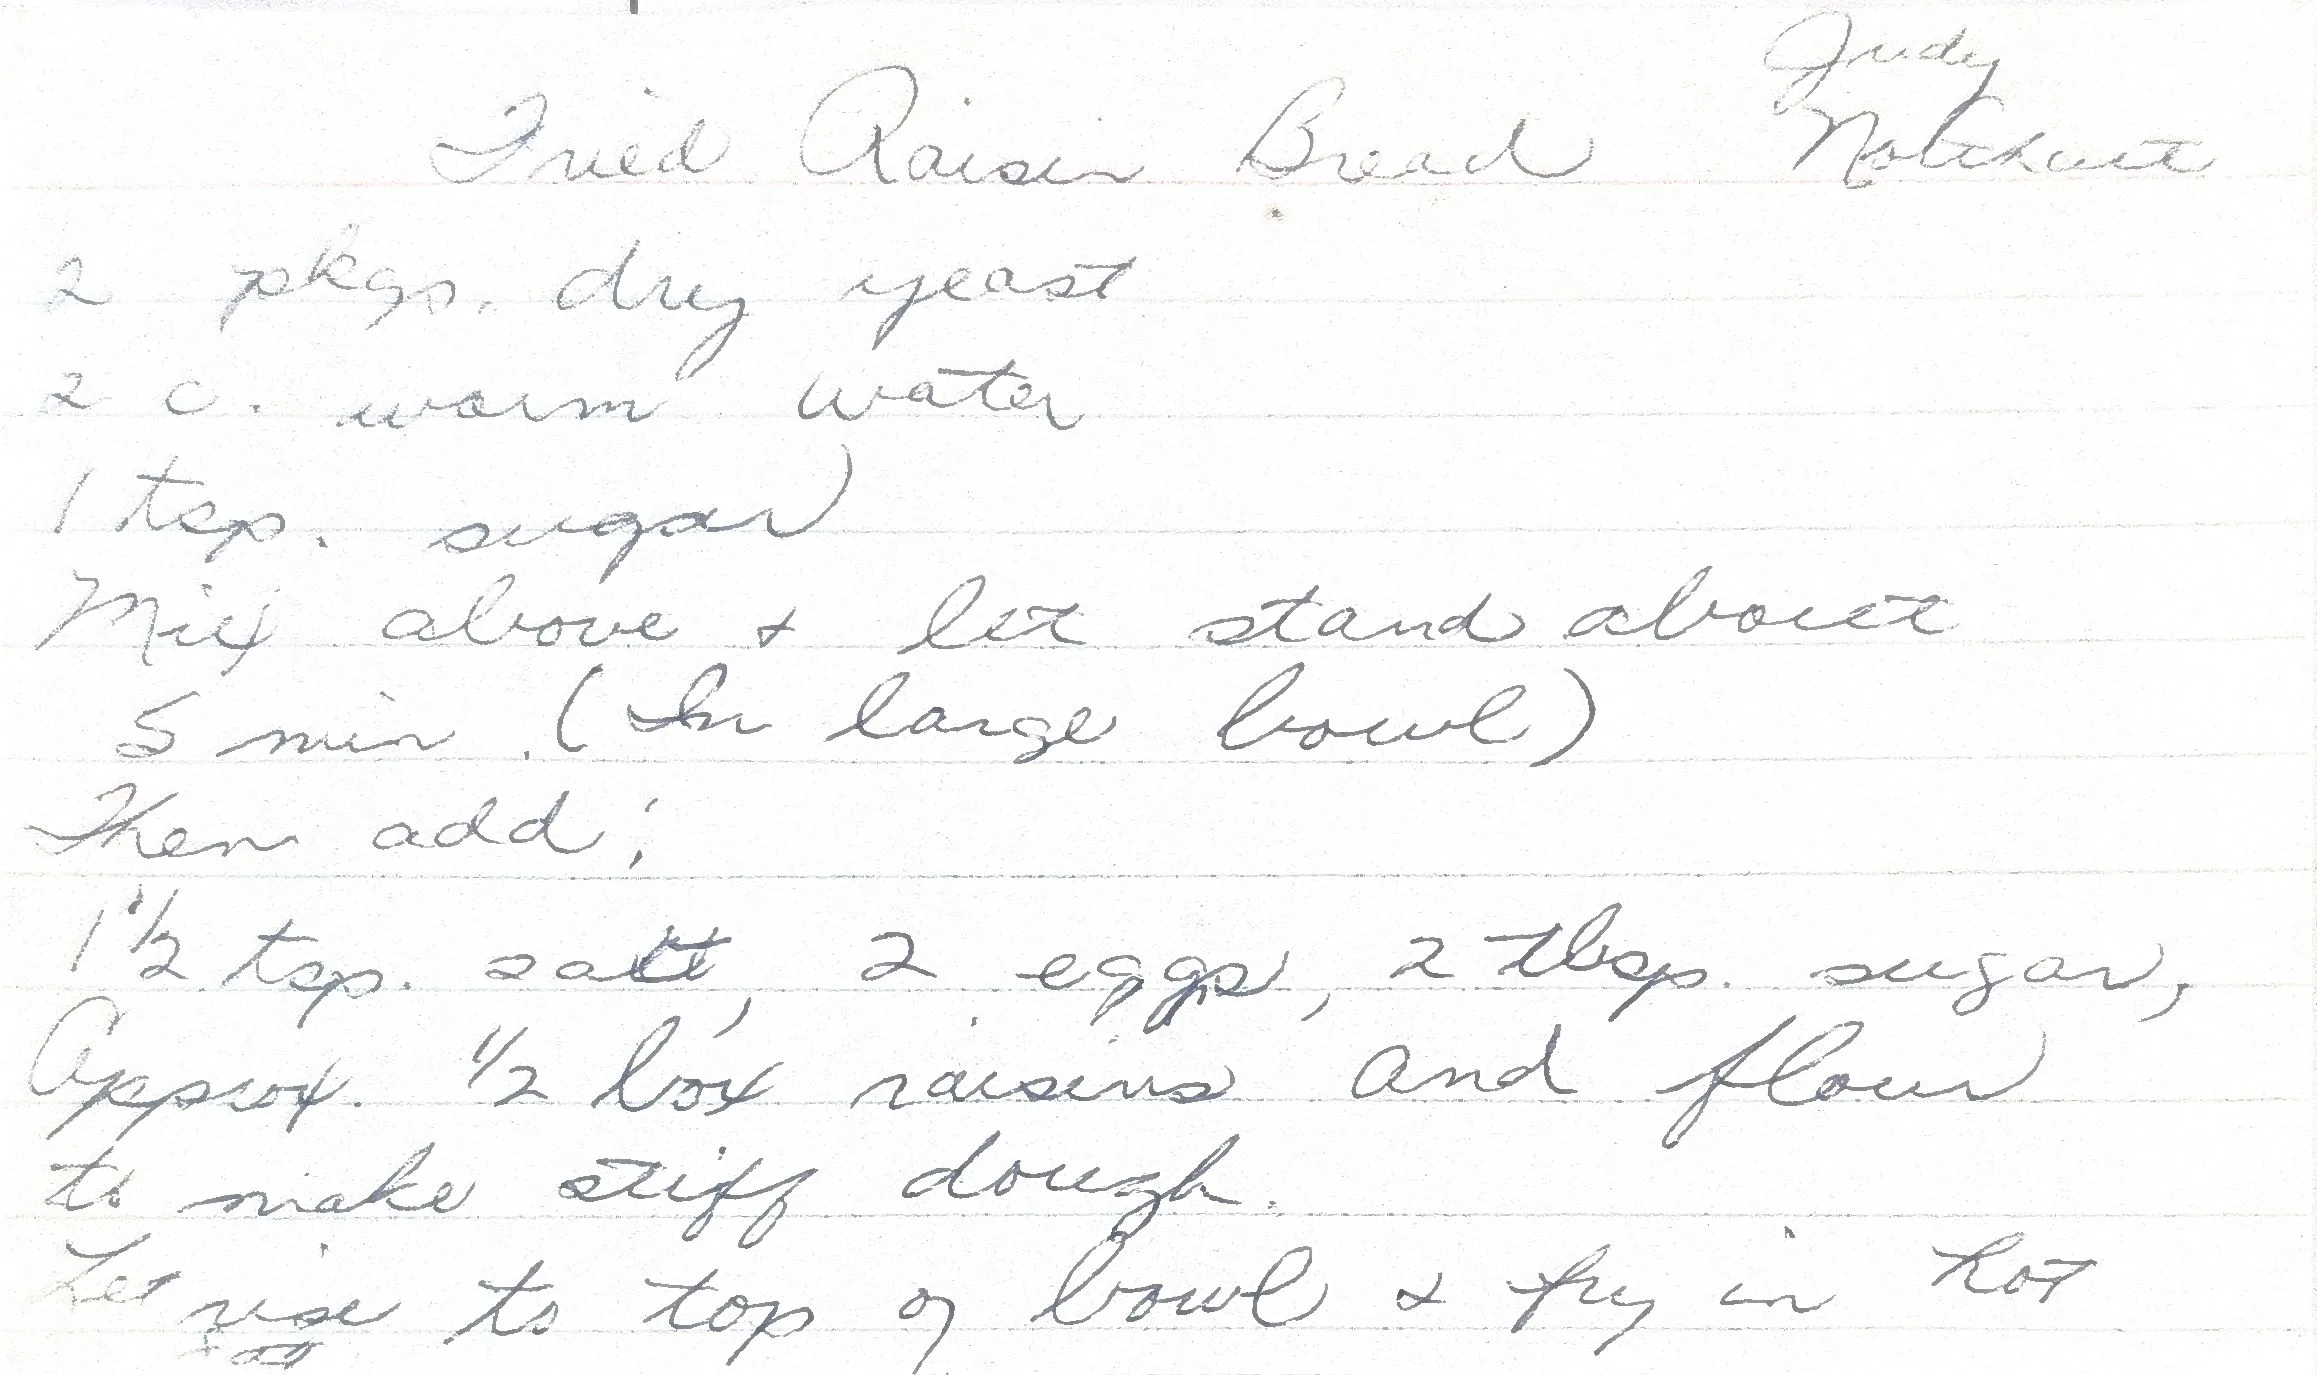 Judy
Fried Raisin Bread
2 pkgs. dry yeast
2 c. warm water
1 tsp. sugar
Mix above + let stand about
5 min. (In large bowl)
Then add:
1 1/2 tsp. salt, 2 eggs, 2 tbsp. sugar,
Approx. 1/2 box raisins and flour
to make stiff dough.
Let rise to top of bowl & fry in hot